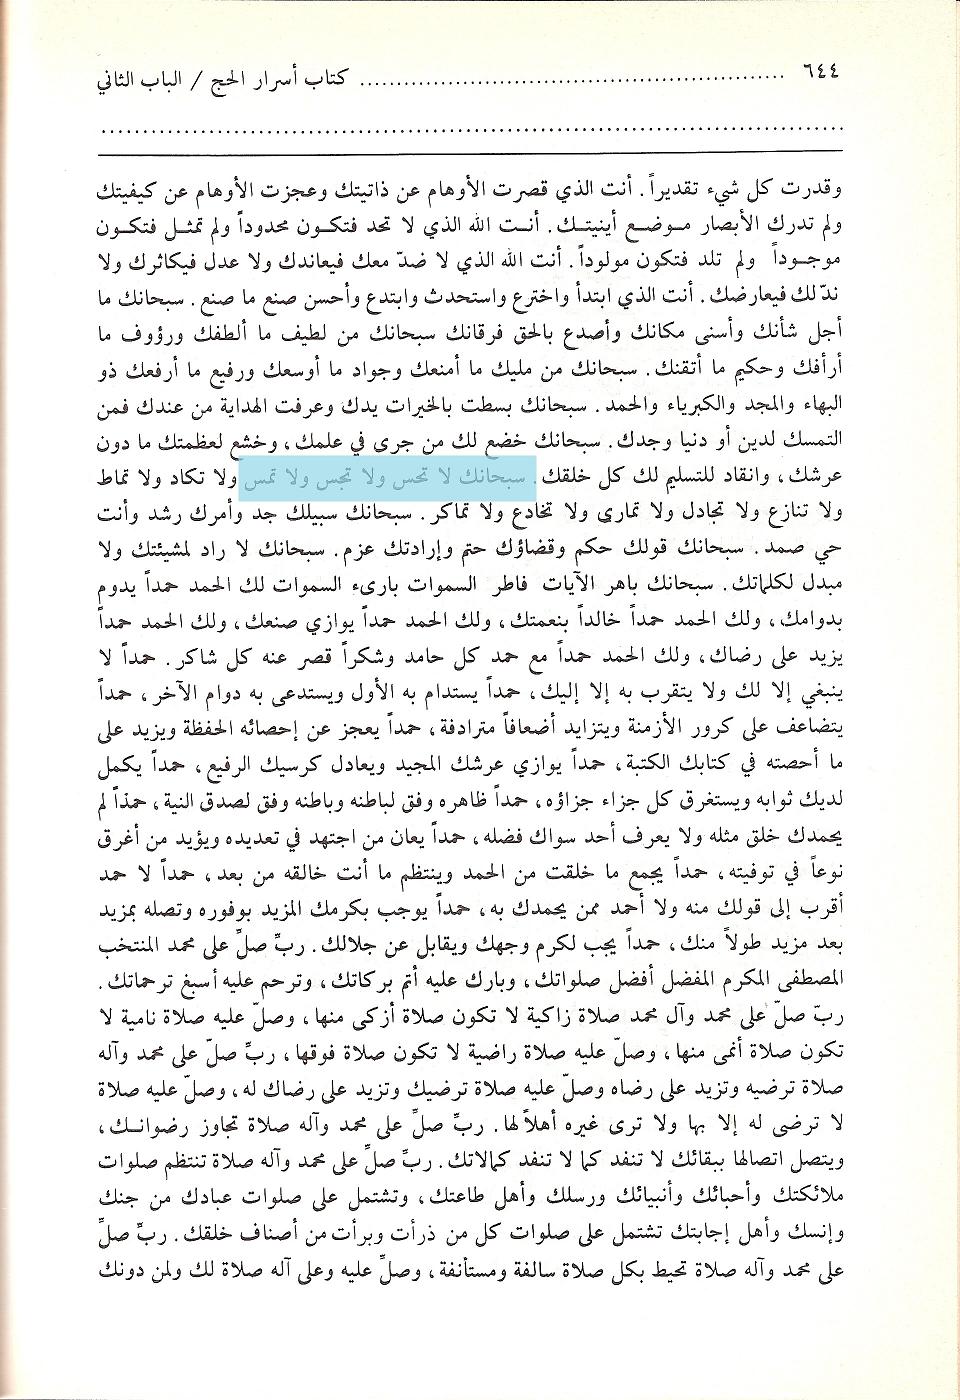 ٦٤٤ ........................................................ كتاب أسرار الحج / الباب الثاني
وقدرت كل شيء تقديراً. أنت الذي قصرت الأوهام عن ذاتيتك وعجزت الأوهام عن كيفيتك
ولم تدرك الأبصار موضع أينيتك. أنت الله الذي لا تحد فتكون محدوداً ولم تمثل فتكون
موجوداً ولم تلد فتكون مولوداً. أنت الله الذي لا ضدّ معك فيعاندك ولا عدل فيكاثرك ولا
ندّ لك فيعارضك. أنت الذي ابتدأ واخترع واستحدث وابتدع وأحسن صنع ما صنع. سبحانك ما
أجل شأنك وأسنى مكانك وأصدع بالحق فرقانك سبحانك من لطيف ما ألطفك ورؤوف ما
أرأفك وحكيم ما أتقنك. سبحانك من مليك ما أمنعك وجواد ما أوسعك ورفيع ما أرفعك ذو
البهاء والمجد والكبرياء والحمد. سبحانك بسطت بالخيرات يدك وعرفت الهداية من عندك فمن
التمسك لدين أو دنيا وجدك. سبحانك خضع لك من جرى في علمك، وخشع لعظمتك ما دون
عرشك، وانقاد للتسليم لك كل خلقك. سبحانك لا تحس ولا تجس ولا تمس ولا تكاد ولا تماط
ولا تنازع ولا تجادل ولا تمارى ولا تخادع ولا تماكر. سبحانك سبيلك جد وأمرك رشد وأنت
حي صمد. سبحانك قولك حكم وقضاؤك حتم وإرادتك عزم. سبحانك لا راد لمشيئتك ولا
مبدل لكلماتك. سبحانك باهر الآيات فاطر السموات بارىء السموات لك الحمد حمداً يدوم
بدوامك، ولك الحمد حمداً خالداً بنعمتك، ولك الحمد حمداً يوازي صنعك، ولك الحمد حمداً
يزيد على رضاك، ولك الحمد حمداً مع حمد كل حامد وشكراً قصر عنه كل شاكر. حمداً لا
ينبغي إلا لك ولا يتقرب به إلا إليك، حمداً يستدام به الأول ويستدعى به دوام الآخر، حمداً
يتضاعف على كرور الأزمنة ويتزايد أضعافاً مترادفة، حمداً يعجز عن إحصائه الحفظة ويزيد على
ما أحصته في كتابك الكتبة، حمداً يوازي عرشك المجيد ويعادل كرسيك الرفيع، حمداً يكمل
لديك ثوابه ويستغرق كل جزاء جزاؤه، حمداً ظاهره وفق لباطنه وباطنه وفق لصدق النية، حمدًا لم
يحمدك خلق مثله ولا يعرف أحد سواك فضله، حمداً يعان من اجتهد في تعديده ويؤيد من أغرق
نوعاً في توفيته، حمداً يجمع ما خلقت من الحمد وينتظم ما أنت خالقه من بعد، حمداً لا حمد
أقرب إلى قولك منه ولا أحمد ممن يحمدك به، حمداً يوجب بكرمك المزيد بوفوره وتصله بمزيد
بعد مزيد طولاً منك، حمداً يجب لكرم وجهك ويقابل عن جلالك. ربِّ صلِّ على محمد المنتخب
المصطفى المكرم المفضل أفضل صلواتك، وبارك عليه أتم بركاتك، وترحم عليه أسبغ ترحماتك.
ربّ صلّ على محمد وآل محمد صلاة زاكية لا تكون صلاة أزكى منها، وصلّ عليه صلاة نامية لا
تكون صلاة أنمى منها، وصلّ عليه صلاة راضية لا تكون صلاة فوقها، ربِّ صلّ على محمد وآله
صلاة ترضيه وتزيد على رضاه وصلّ عليه صلاة ترضيك وتزيد على رضاك له، وصلّ عليه صلاة
لا ترضى له إلا بها ولا ترى غيره أهلاً لها. ربِّ صلِّ على محمد وآله صلاة تجاوز رضوانك،
ويتصل اتصالها ببقائك لا تنفد كما لا تنفد كمالاتك. ربِّ صلِّ على محمد وآله صلاة تنتظم صلوات
ملائكتك وأحبائك وأنبيائك ورسلك وأهل طاعتك، وتشتمل على صلوات عبادك من جنك
وإنسك وأهل إجابتك تشتمل على صلوات كل من ذرأت وبرأت من أصناف خلقك. ربِّ صلِّ
على محمد وآله صلاة تحيط بكل صلاة سالفة ومستأنفة، وصلِّ عليه وعلى آله صلاة لك ولمن دونك